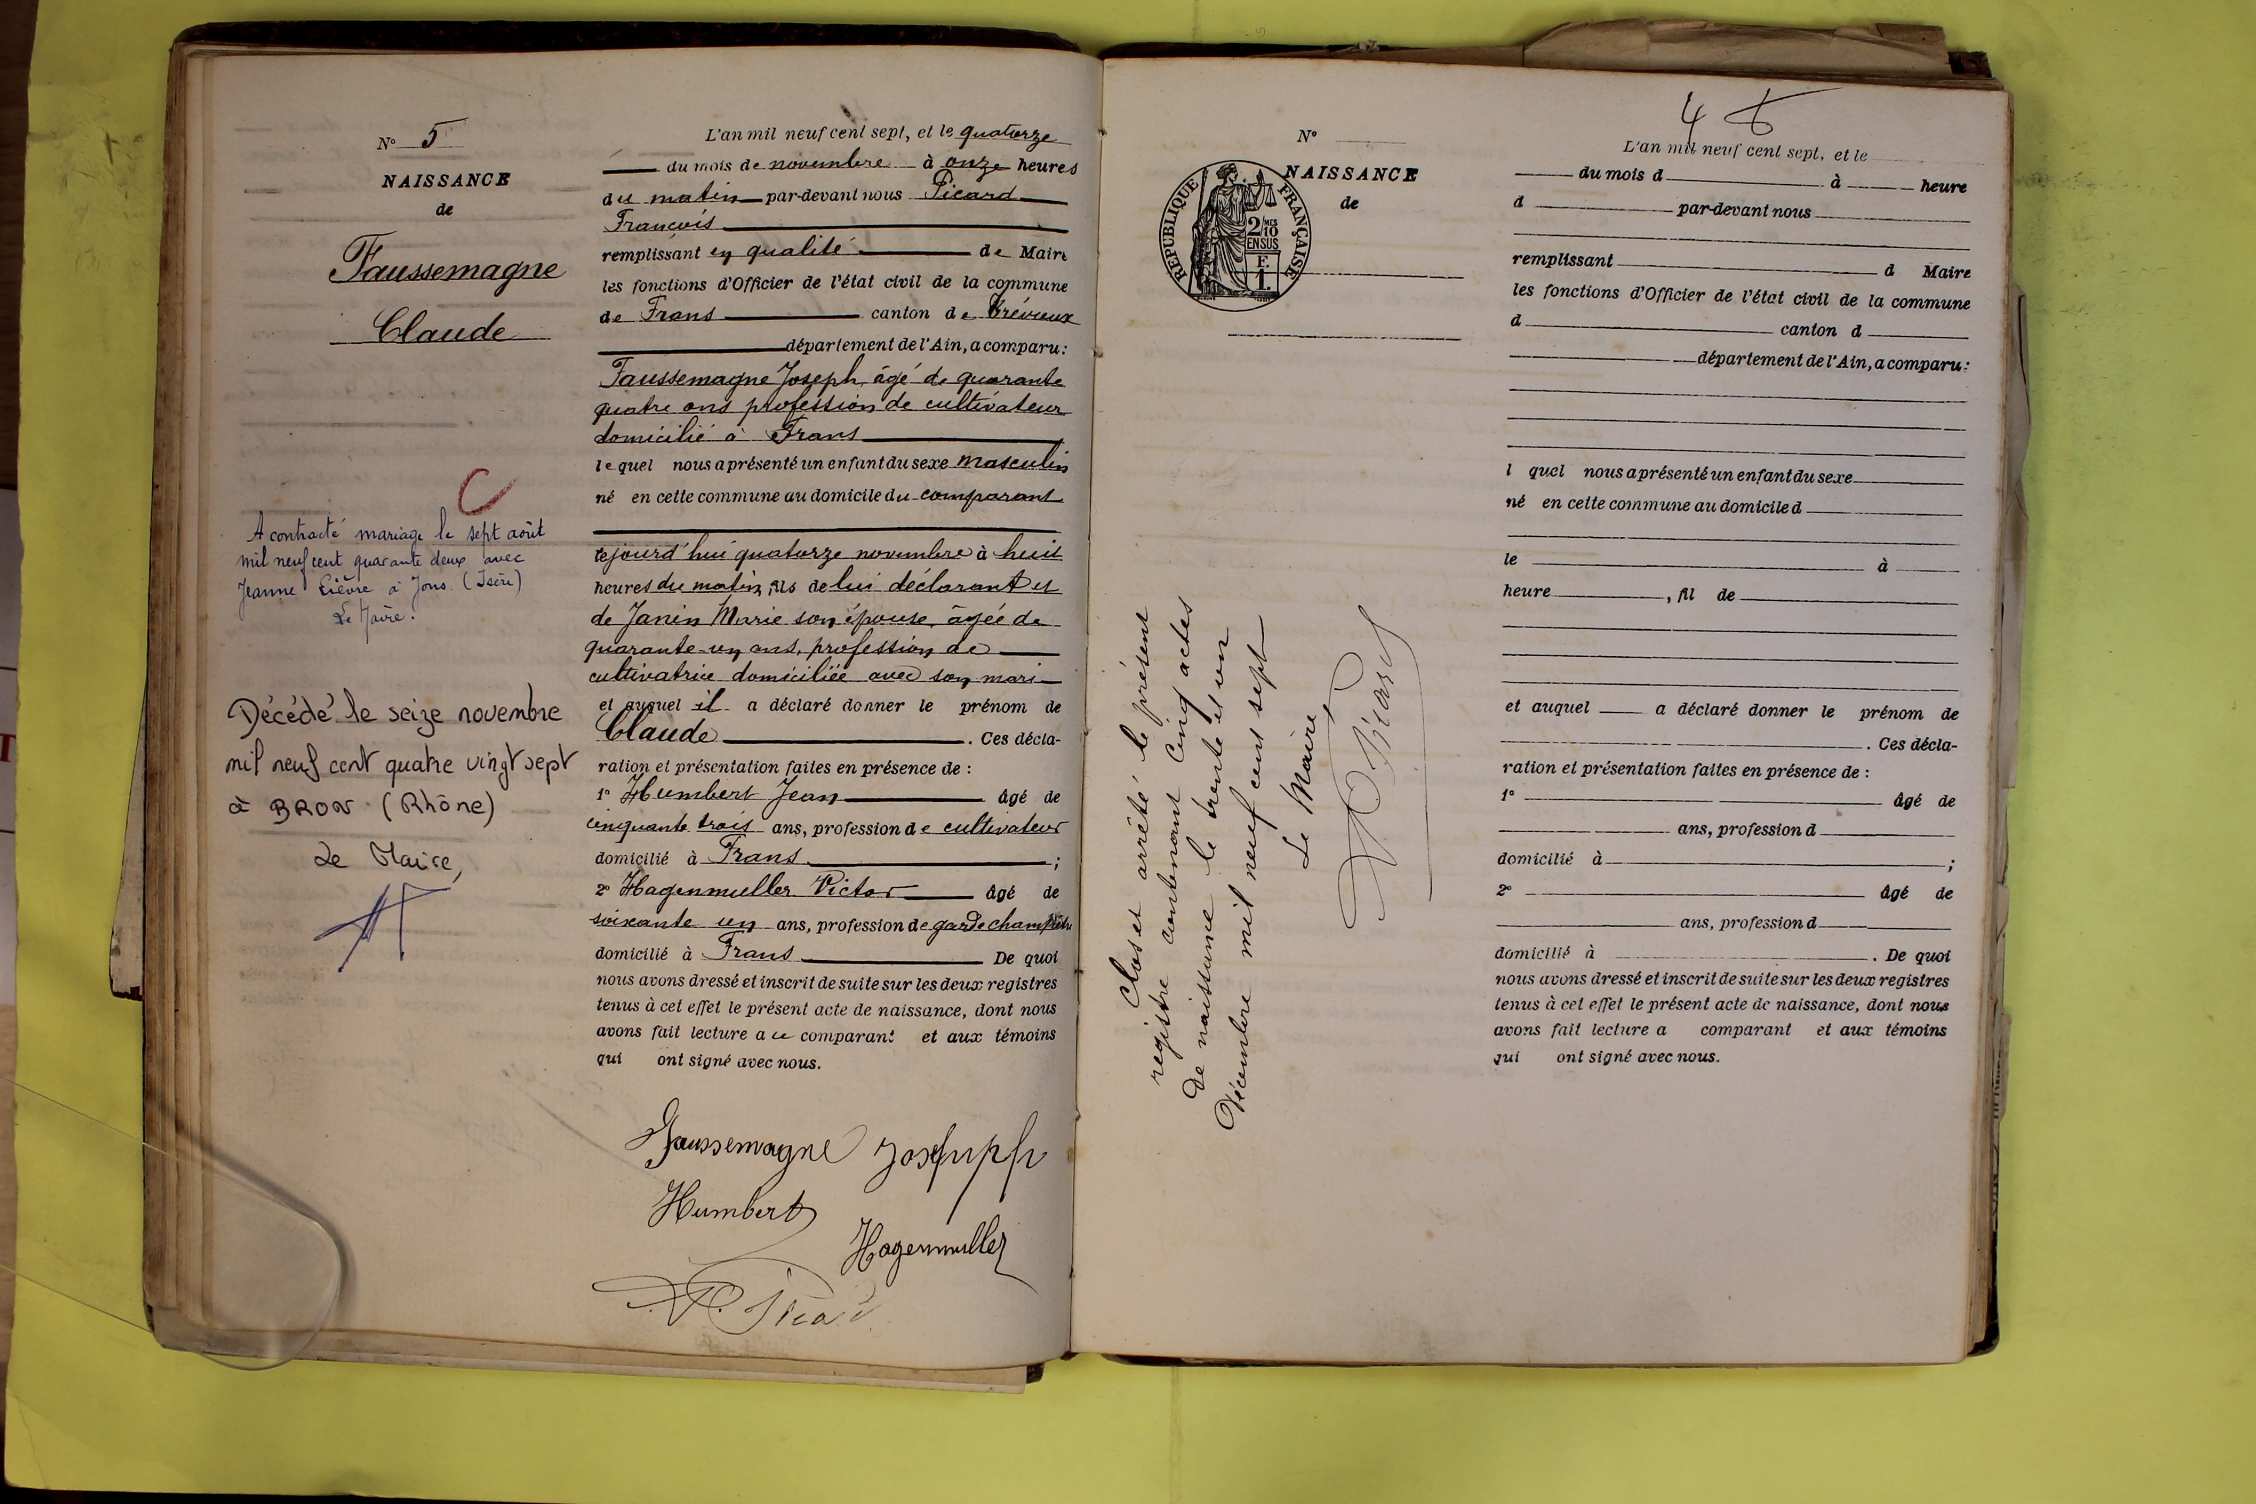 N° 5
NAISSANCE
de
Faussemagne
Claude
A contracté mariage le sept août
mil neuf cent quarante deux avec
Jeanne Lièvre à Jons (Isère)
Le Maire.
Décédé le seize novembre
mil neuf cent quatre vingt sept
à BRON (Rhône)
Le Maire,
L'an mil neuf cent sept, et le quatorze
du mois de novembre à onze heures
du matin par-devant nous Picard
François
remplissant en qualité de Maire
les fonctions d'Officier de l'état civil de la commune
de Frans canton de Trévoux
département de l'Ain, a comparu :
Faussemagne Joseph, âgé de quarante
quatre ans profession de cultivateur
domicilié à Frans
lequel nous a présenté un enfant du sexe masculin
né en cette commune au domicile du comparant
cejourd'hui quatorze novembre à huit
heures du matin, fils de lui déclarant et
de Janin Marie son épouse, âgée de
quarante-un ans, profession de
cultivatrice domiciliée avec son mari
et auquel il a déclaré donner le prénom de
Claude . Ces décla-
ration et présentation faites en présence de :
1° Humbert Jean âgé de
cinquante trois ans, profession de cultivateur
domicilié à Frans ;
2° Hagenmuller Victor âgé de
soixante un ans, profession de garde champêtre
domicilié à Frans De quoi
nous avons dressé et inscrit de suite sur les deux registres
tenus à cet effet le présent acte de naissance, dont nous
avons fait lecture au comparant et aux témoins
qui ont signé avec nous.
Faussemagne Joseph
Humbert
Hagenmuller
Picard
N°
NAISSANCE
de
RÉPUBLIQUE FRANÇAISE
2/10
EN SUS
F.
1.
Clos et arrêté le présent
registre contenant cinq actes
de naissance le trente et un
Décembre mil neuf cent sept
Le Maire
Picard
4
L'an mil neuf cent sept, et le
du mois d à heure
d par-devant nous
remplissant d Maire
les fonctions d'Officier de l'état civil de la commune
d canton d
département de l'Ain, a comparu :
l quel nous a présenté un enfant du sexe
né en cette commune au domicile d
le à
heure , fil de
et auquel a déclaré donner le prénom de
. Ces décla-
ration et présentation faites en présence de :
1° âgé de
ans, profession d
domicilié à ;
2° âgé de
ans, profession d
domicilié à . De quoi
nous avons dressé et inscrit de suite sur les deux registres
tenus à cet effet le présent acte de naissance, dont nous
avons fait lecture a comparant et aux témoins
qui ont signé avec nous.